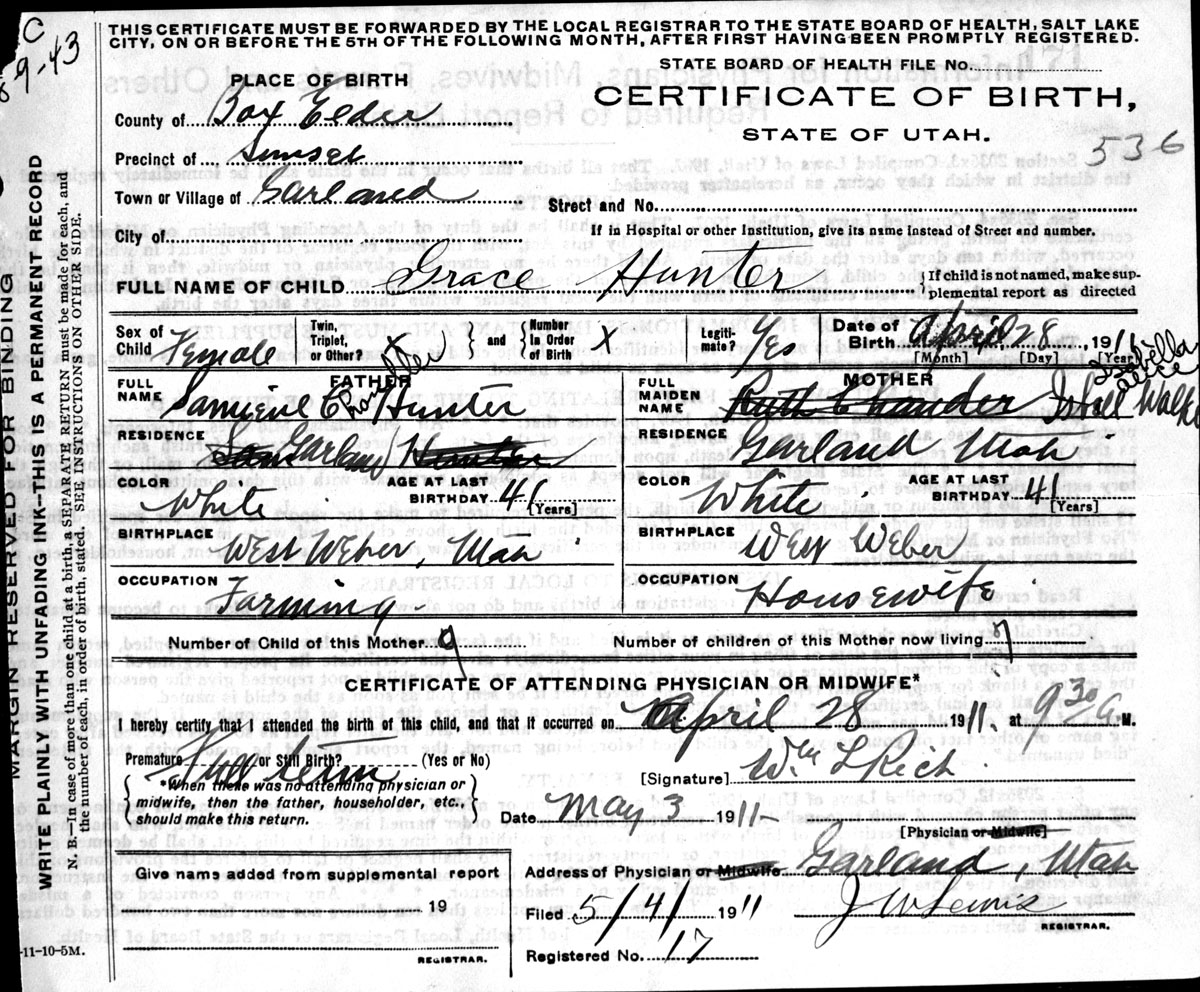 THIS CERTIFICATE MUST BE FORWARDED BY THE LOCAL REGISTRAR TO THE STATE BOARD OF HEALTH, SALT LAKE
CITY, ON OR BEFORE THE 5TH OF THE FOLLOWING MONTH, AFTER FIRST HAVING BEEN PROMPTLY REGISTERED.
9-43
STATE BOARD OF HEALTH FILE No.
PLACE OF BIRTH
CERTIFICATE OF BIRTH,
STATE OF UTAH.
536
County of Box Elder
Precinct of Sunset
Town or Village of Garland
Street and No.
City of
If in Hospital or other Institution, give its name instead of Street and number.
FULL NAME OF CHILD Grace Hunter
If child is not named, make sup-
plemental report as directed
Sex of Child Female
Twin, Triplet, or Other? X
and
Number in Order of Birth X
Legiti-mate? Yes
Date of Birth April 28, 1911
[Month] [Day] [Year]
FATHER
FULL NAME Hunter
RESIDENCE Garland Hunter
COLOR White
AGE AT LAST BIRTHDAY 41 [Years]
BIRTHPLACE West Weber, Utah
OCCUPATION Farming
MOTHER
Isabella
Alice
FULL MAIDEN NAME Ruth
RESIDENCE Garland Utah
COLOR White
AGE AT LAST BIRTHDAY 41 [Years]
BIRTHPLACE West Weber
OCCUPATION Housewife
Number of Child of this Mother 9
Number of children of this Mother now living
CERTIFICATE OF ATTENDING PHYSICIAN OR MIDWIFE*
I hereby certify, that I attended the birth of this child, and that it occurred on April 28 1911 at 9 30 A M.
Premature or Still Birth? (Yes or No)
Full term
*When there was no attending physician or
midwife, then the father, householder, etc.,
should make this return.
[Signature] Wm L Rich
Date May 3 1911
[Physician or Midwife]
Give name added from supplemental report
19
REGISTRAR.
Address of Physician or Midwife Garland, Utah
Filed 5/4/ 1911
J W Lewis
REGISTRAR.
Registered No. 17
-11-10-5M.
MARGIN RESERVED FOR BINDING
WRITE PLAINLY WITH UNFADING INK--THIS IS A PERMANENT RECORD
N. B.--In case of more than one child at a birth, a SEPARATE RETURN must be made for each, and
the number of each, in order of birth, stated. SEE INSTRUCTIONS ON OTHER SIDE.